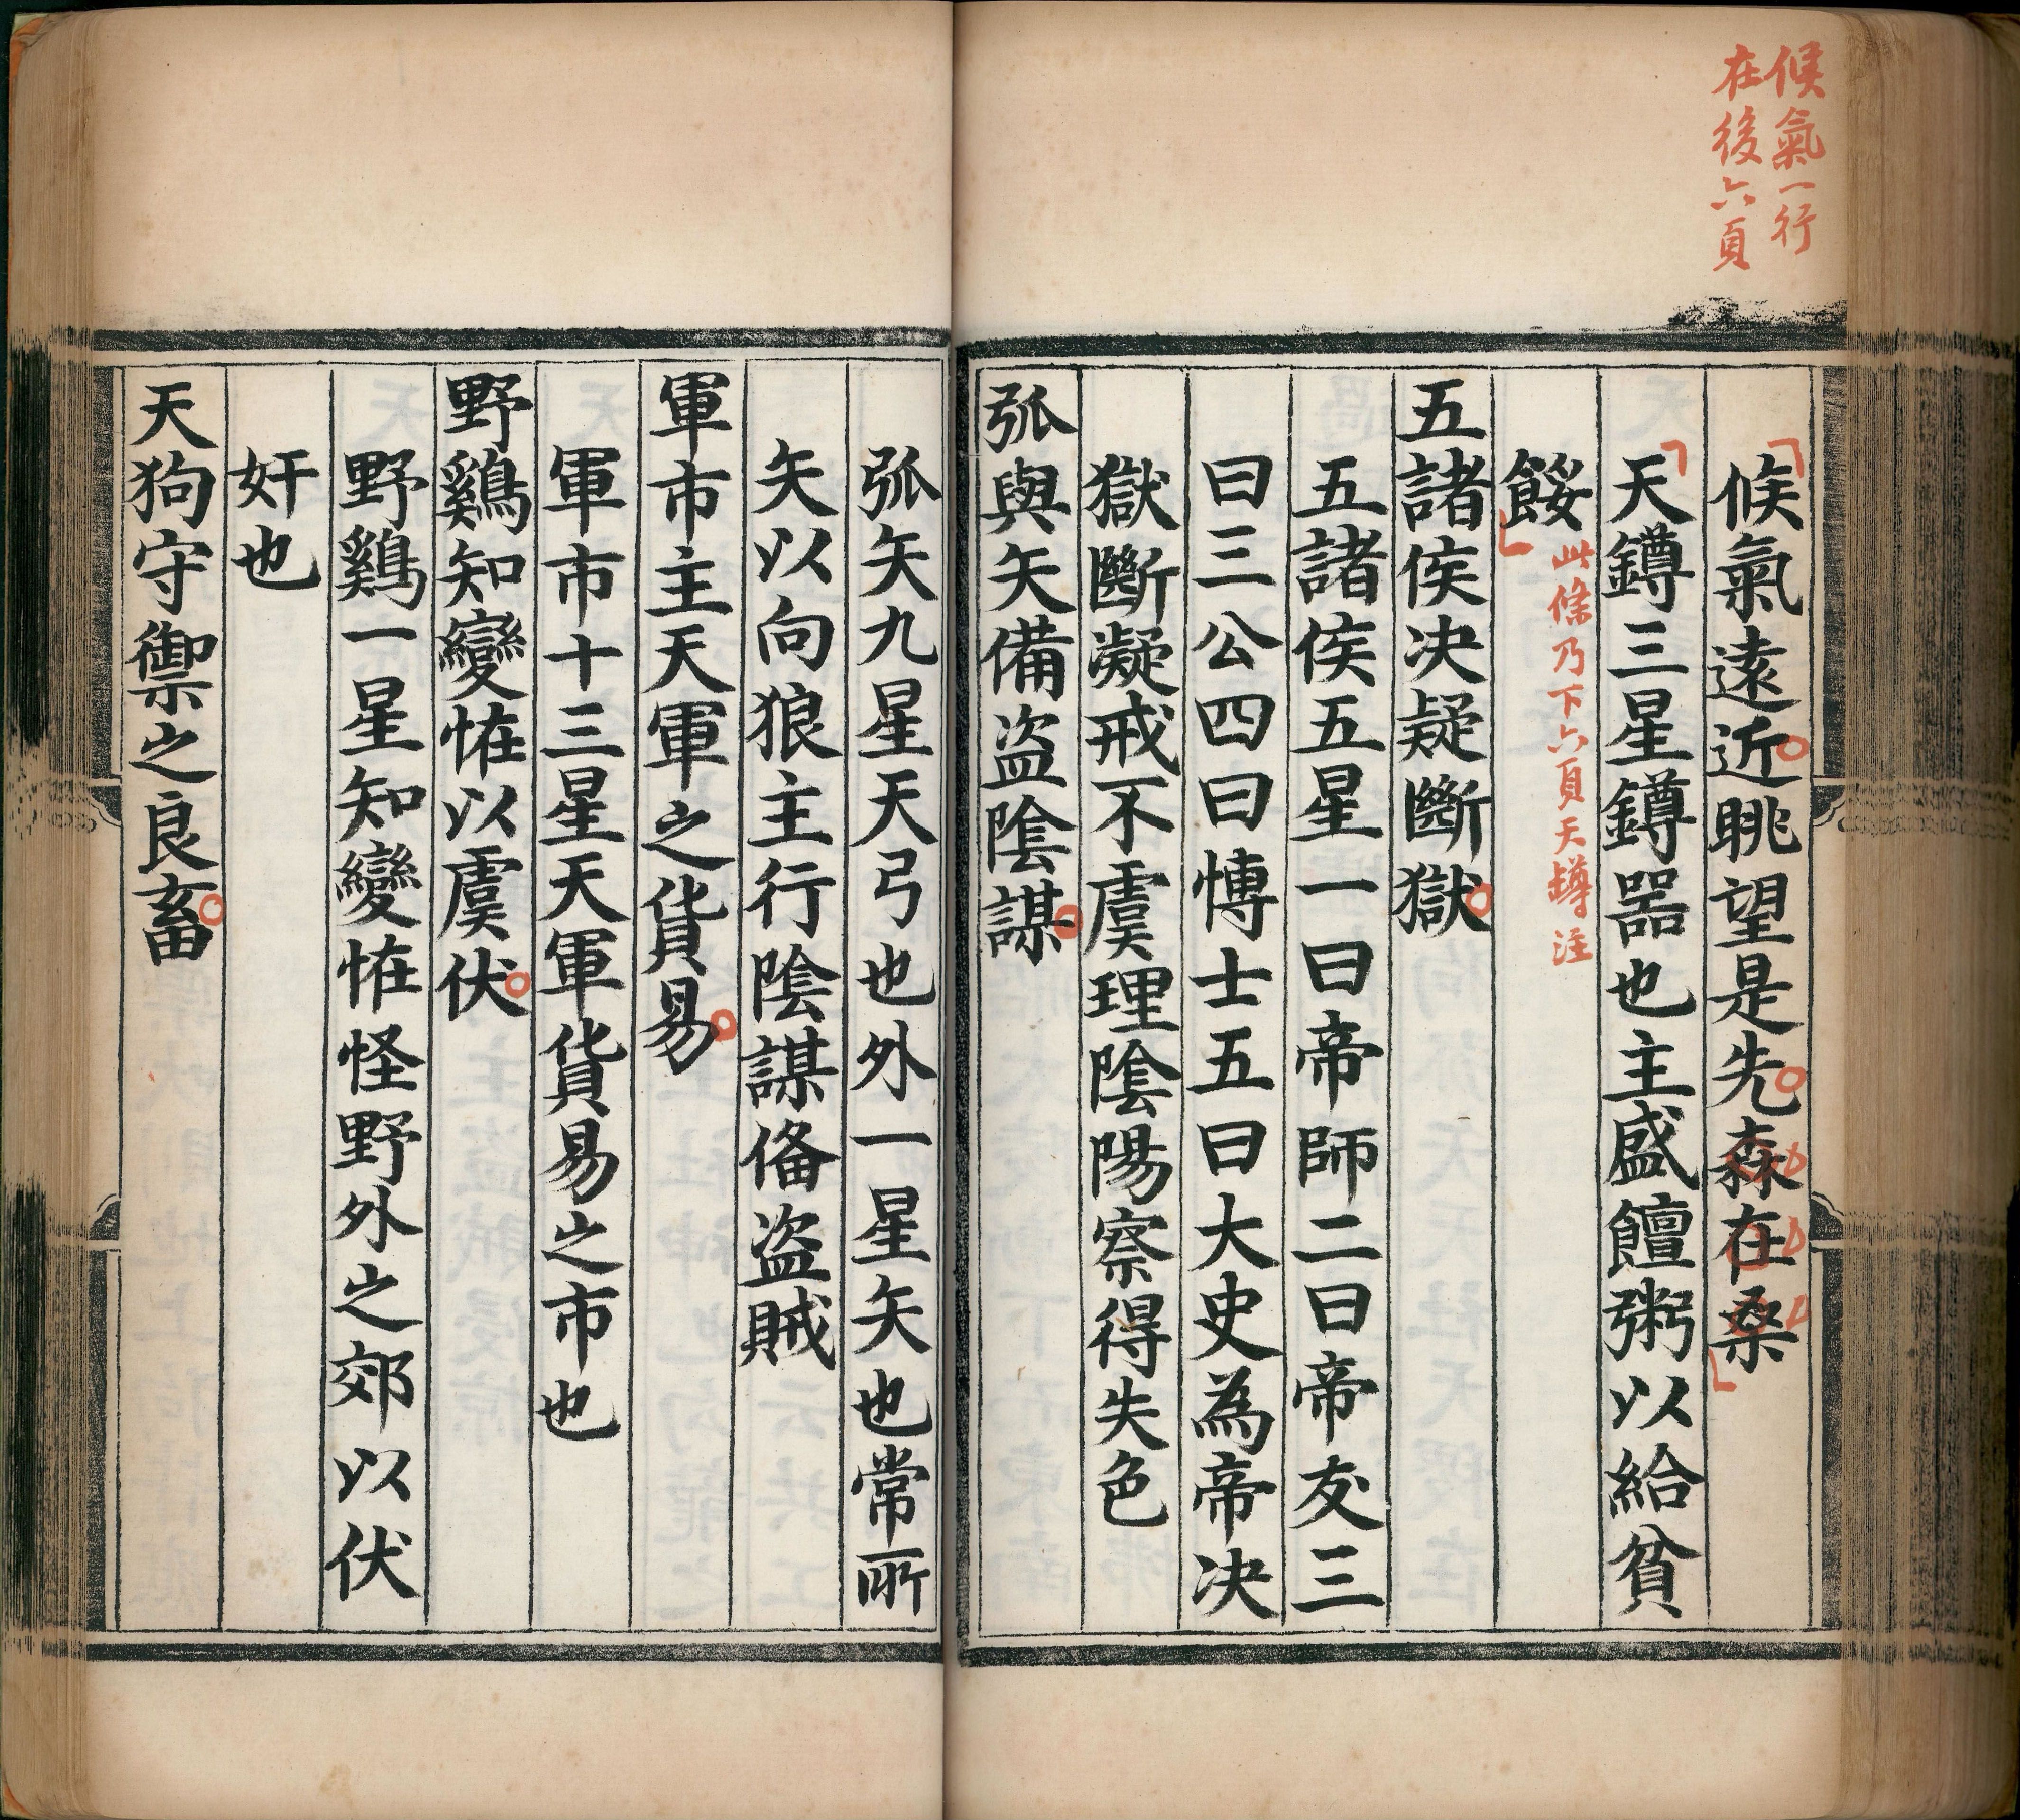 候氣一行
在後六頁
候氣遠近眺望是先森在桑
天鐏三星鐏器也主盛饘粥以給貧
餒
此條乃下六頁天鐏注
五諸侯决疑斷獄
五諸侯五星一曰帝師二曰帝友三
曰三公四曰愽士五曰大史為帝决
獄斷凝戒不虞理隂陽察得失色
弧與矢備盗隂謀
弧矢九星天弓也外一星矢也常所
矢以向狼主行隂謀俻盗賊
軍市主天軍之貨易
軍市十三星天軍貨易之市也
野鷄知變恠以虞伏
野鷄一星知變恠怪野外之郊以伏
奸也
天狗守禦之良畜